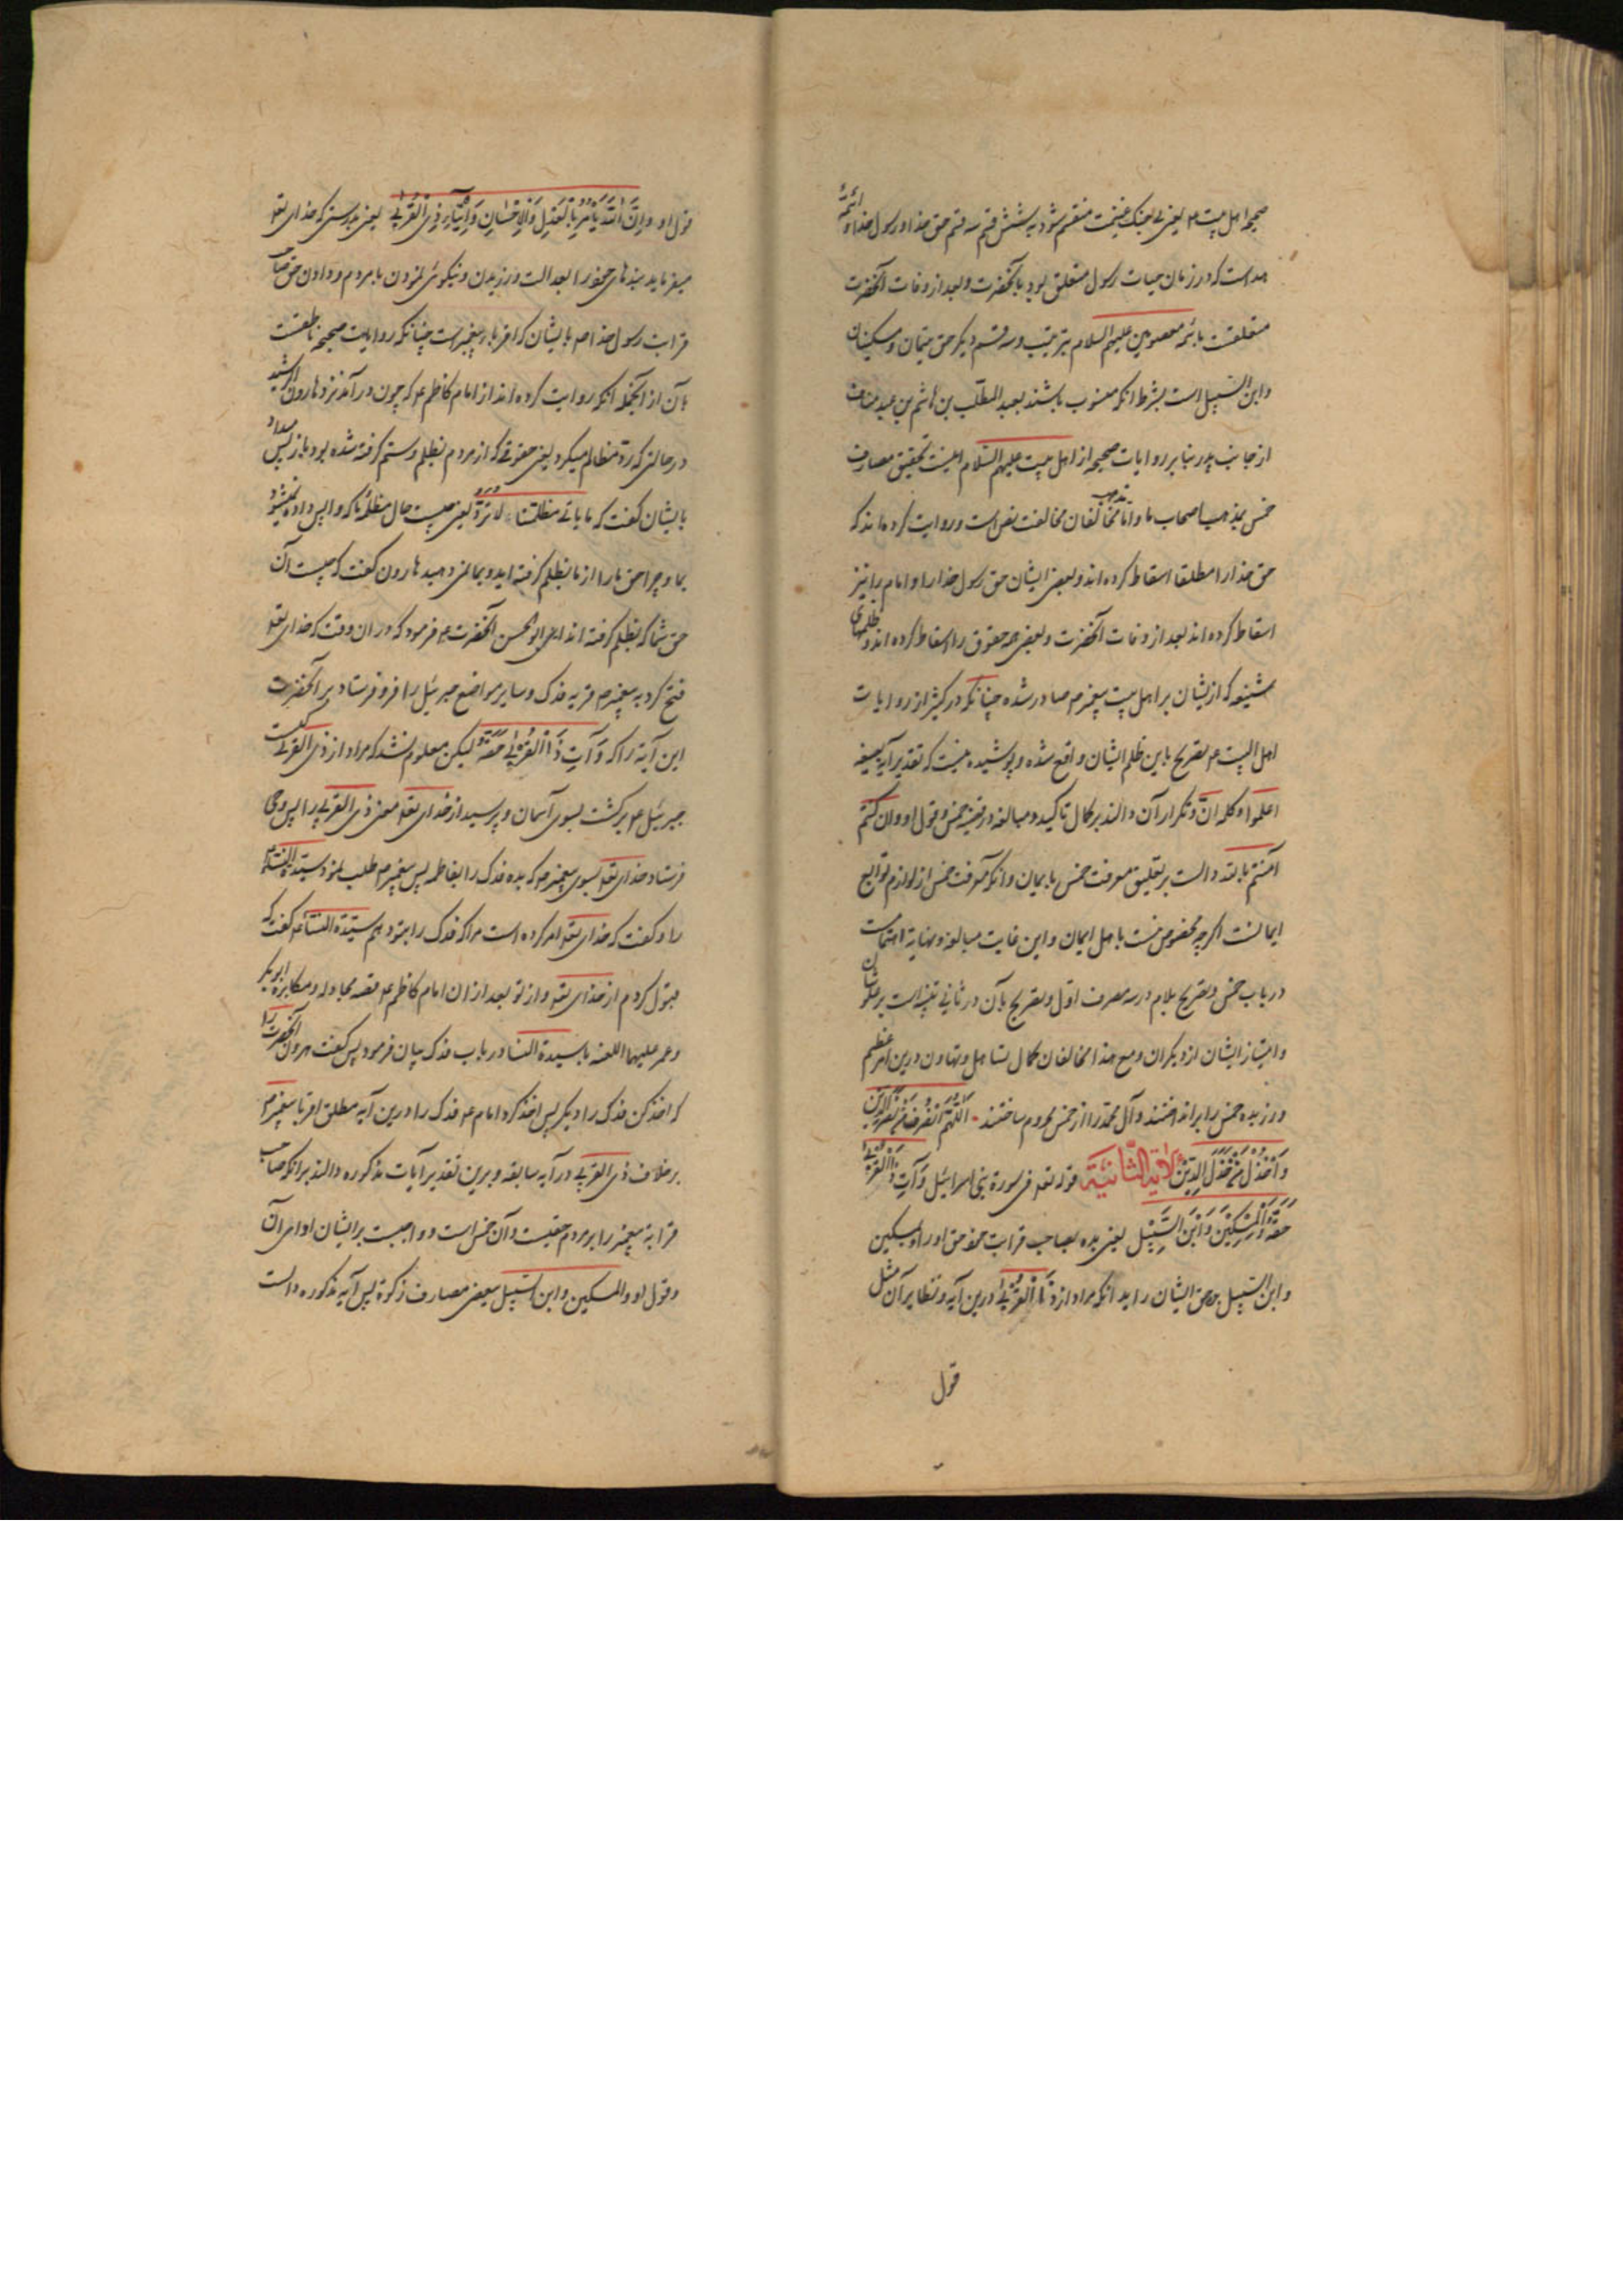 صحیحه اهل بیت ع یعنی بجنگ غنیمت منقسم شود به شش قسم سه قسم حق خدا و رسول خدا و ائمّهٔ
هداست که در زمان حیات رسول متعلق بود بآنحضرت و بعد از وفات آنحضرت
متعلقست بائمه معصومین علیهم السلام بترتیب و سه قسم دیگر حق یتیمان و مسکینان
و ابن السّبیل است بشرط آنکه منسوب باشند بعبد المطلّب بن هاشم بن عبد مناف
از جانب پدر بنابر روایات صحیحه از اهل بیت علیهم السّلام اینست تحقیق مصارف
خمس بمذهب اصحاب ما و امّا مذهب مخالفان مخالفت نص است و روایت کرده‌اند که
حق خدا را مطلقا اسقاط کرده‌اند و بعضی ایشان حق رسول خدا را و امام را نیز
اسقاط کرده‌اند بعد از وفات آنحضرت و بعضی همه حقوق را اسقاط کرده‌اند و ظلمهای
شنیعه که از یشان بر اهل بیت پیغمبر ص صادر شده چنانکه در کثیر از روایات
اهل البیت ع تصریح باین ظلم ایشان واقع شده و پوشیده نیست که تصدیر آیه بصیغه
اعلموا و کلمه انّ و تکرار آن دالند بر کمال تاکید و مبالغه در قضیه خمس و قول او و ان کنتم
آمنتم بالله دالست بر تعلیق معرفت خمس بایمان و آنکه معرفت خمس از لوازم و توابع
ایمانست اگرچه مخصوص نیست باهل ایمان و این غایت مبالغه و نهایة اهتمامست
در باب خمس و تصریح بلام در سه مصرف اوّل و تصریح بآن در ثانی تنبیه است بر علو شان
و امتیاز ایشان از دیگران و مع هذا مخالفان کمال تساهل و تهاون درین امر عظیم
ورزیده خمس را بر انداختند و آل محمّد را از خمس محروم ساختند اَللّهُمَّ انْصُرْ مَنْ نَصَرَ الدّین
وَاخْذُلْ مَنْ خَذَلَ الدّینَ الآیة الثّانیَة قوله تعه فی سورة بنی اسرائیل وَ آتِ ذَا الْقُرْبی
حَقَّهُ وَ الْمِسْکینَ وَ ابْنَ السَّبیلِ یعنی بده بصاحب قرابت خود حق او را و مسکین
و ابن السّبیل حق ایشان را بدانکه مراد از ذَا الْقُرْبی درین آیه و نظایر آن مثل
قول
قول او و اِنَّ اللهَ یَأمُرُ بِالْعَدْلِ وَ الْإحْسانِ وَ اِیتَاءِ ذِی الْقُرْبی یعنی بدرستی که خدای تعه
میفرماید بندهای خود را بعدالت ورزیدن و نیکوئی نمودن با مردم و دادن حق صاحب
قرابت رسول خدا ص بایشان که اقربای پیغمبرست چنانکه روایات صحیحه ناطقست
بآن از آنجمله آنکه روایت کرده‌اند از امام کاظم ع که چون درآمد نزد هارون الرشید
در حالتی که ردّ مظالم میکرد یعنی حقوقی که از مردم بظلم و ستم گرفته شده بود باز پس میداد
بایشان گفت که ما بال مظلمتنا لا تُرَدُّ یعنی چیست حال مظلمهٔ ما که واپس داده نمیشود
بما و چرا حق ما را از ما بظلم گرفته‌اید و بما نمی‌دهید هارون گفت که چیست آن
حق شما که بظلم گرفته‌اند ای ابو الحسن آنحضرت ع فرمود که در ان وقت که خدای تعه
فتح کرد به پیغمبر ص قریه فدک و سایر مواضع جبرئیل را فرو فرستاد بر آنحضرت
این آیة را که وَ آتِ ذَا الْقُرْبی حَقَّهُ لیکن معلوم نشد که مراد از ذی القربی کیست
جبرئیل ع برگشت بسوی آسمان و پرسید از خدای تعه معنی ذی القربی را پس وحی
فرستاد خدای تعه بسوی پیغمبر ص که بده فدک را بفاطمه پس پیغمبر ص طلب نمود سیّدة النسا ع
را و گفت که خدای تعه امر کرده است مرا که فدک را بتو دهم سیّدة النسا ع گفت که
قبول کردم از خدای تعه و از تو بعد از ان امام کاظم ع قصه مجادله و مکابره ابوبکر
و عمر علیهما اللعنه با سیدة النسا در باب فدک بیان فرمود پس گفت هرون آنحضرت را
که اخذ کن فدک را دیگر پس اخذ کرد امام ع فدک را درین آیه مطلق اقربا پیغمبر ص
برخلاف ذی القربی در آیه سابقه و برین تقدیر آیات مذکوره دالند بر آنکه صاحب
قرابة پیغمبر را بر مردم حقیست و آن خمس است و واجبست بر ایشان ادای آن
و قول او و المسکین و ابن السّبیل بعضی مصارف زکوة پس آیه مذکوره دالست